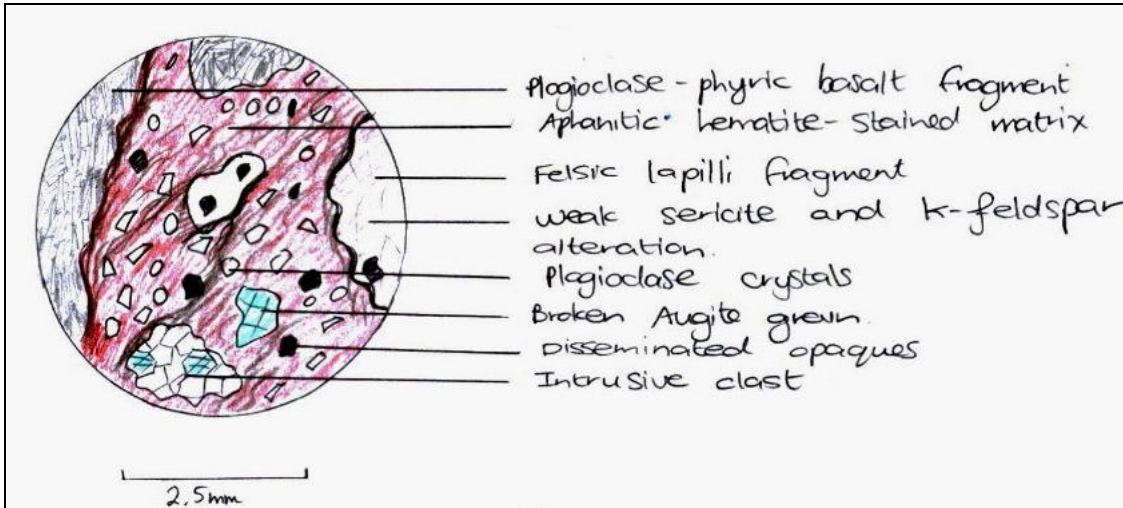 Plagioclase - phyric basalt fragment
Aphanitic hematite - stained matrix
Felsic lapilli fragment
weak sericite and K-feldspar
alteration.
Plagioclase crystals
Broken Augite grain.
Disseminated opaques
Intrusive clast
2.5mm